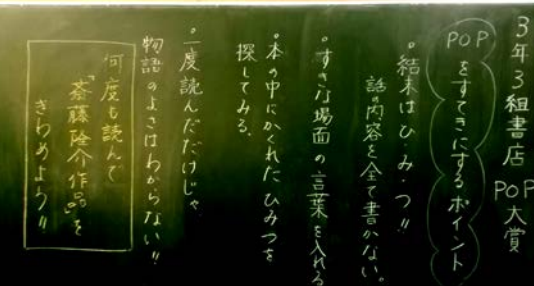 3年3組書店POP大賞
POPをすてきにするポイント
・結末はひ・み・つ!!
話の内容を全て書かない。
・すきな場面の言葉を入れる
・本の中にかくれたひみつを
探してみる。
・一度読んだだけじゃ
物語のよさはわからない!!
何度も読んで
「斎藤隆介作品」を
きわめよう!!